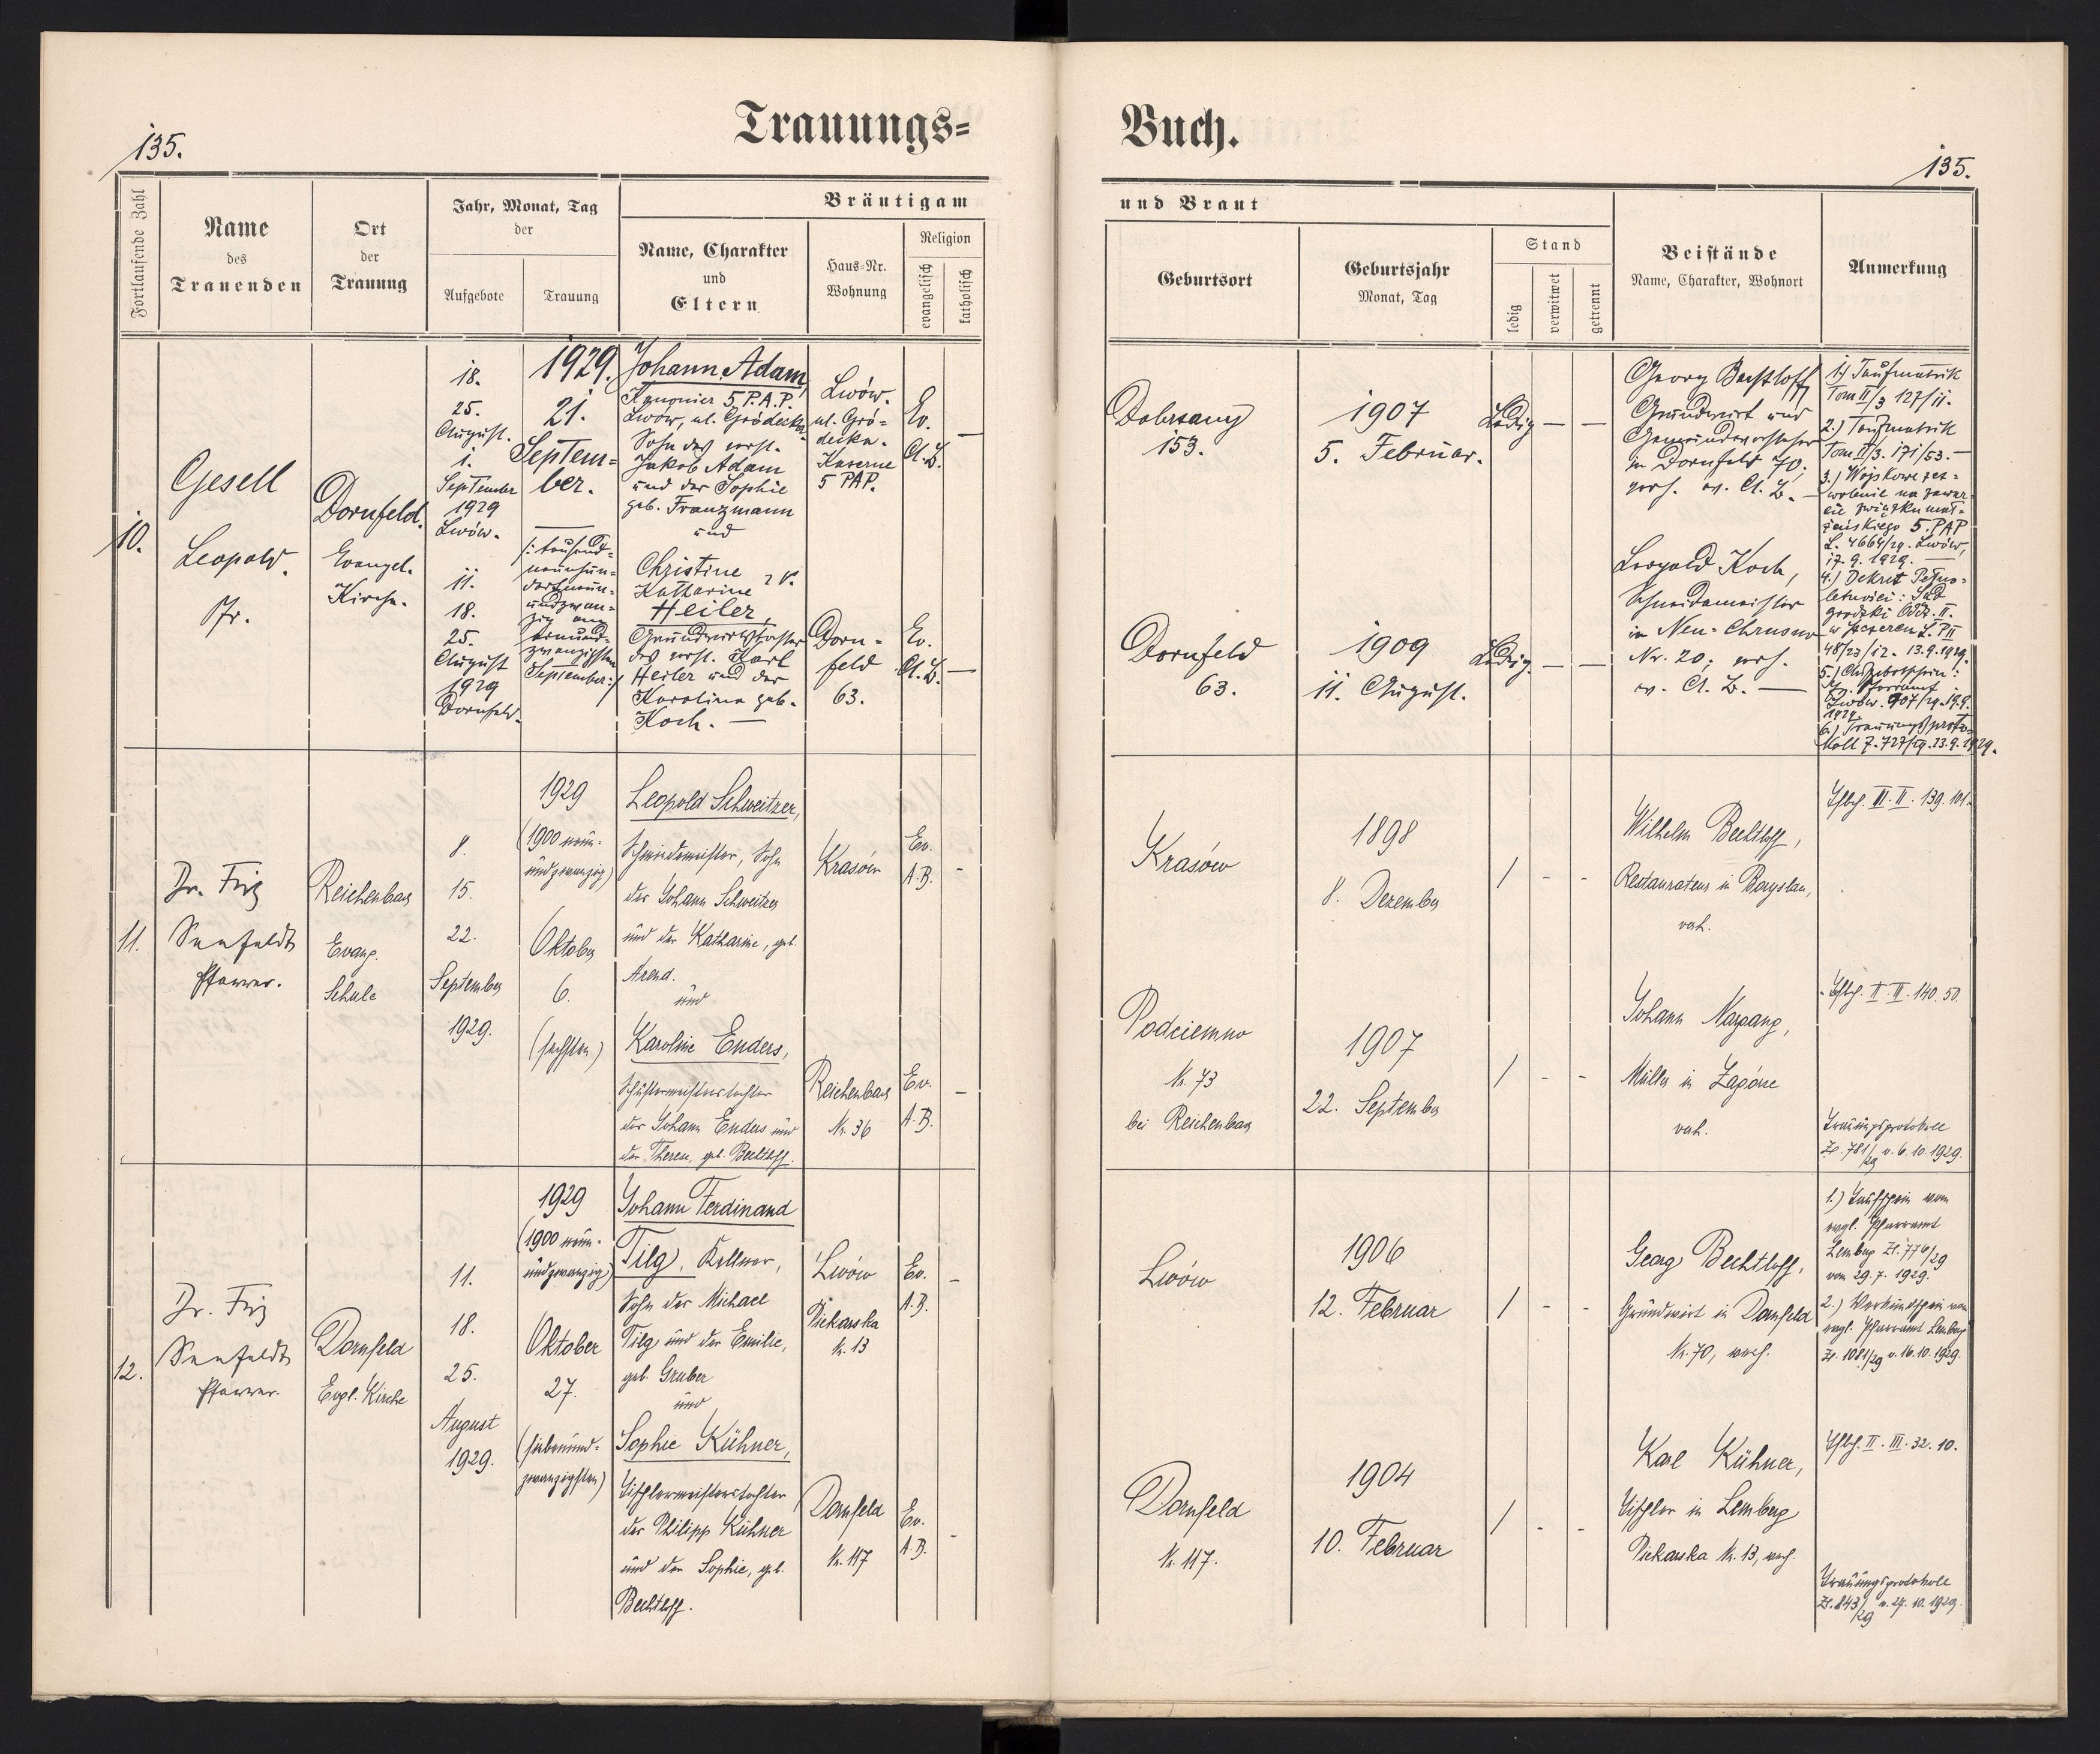 Trauungs=
Buch.
135.
135.
Fortlaufende Zahl
Name
des
Trauenden
Ort
der
Trauung
Jahr, Monat, Tag
der
Aufgebote
Trauung
Bräutigam
Name, Charakter
und
Eltern
Haus=Nr.
Wohnung
Religion
evangelisch
katholisch
und Braut
Geburtsort
Geburtsjahr
Monat, Tag
Stand
ledig
verwitwet
getrennt
Beistände
Name, Charakter, Wohnort
Anmerkung
10.
Gesell
Leopold.
Pr.
Dornfeld.
Evangel.
Kirche.
18.
25.
August.
1.
September
1929
Lwów.
11.
18.
25.
August
1929
Dornfeld.
1929.
21.
Septem=
ber.
/: tausend=
neunhun=
dertneun=
undzwan=
zig am
einund=
zwanzigsten
September :/
Johann Adam,
Kanonier 5. P.A.P.
Lwów, ul. Gródecka
Sohn des verst.
Jakob Adam
und der Sophie
geb. Franzmann
und
Christine
Katharine
Heiler,
Grundwirtstochter
des verst. Karl
Heiler und der
Karolina geb.
Koch. —
Lwów.
ul. Gró=
decka.
Kaserne
5 PAP.
Dorn=
feld
63.
Ev.
A.B.
—
Ev.
A.B.
—
Dobrzany
153.
Dornfeld
63.
1907
5. Februar.
1909
11. August.
Ledig
—
—
Ledig.
—
—
Georg Bechtloff
Grundwirt und
Gemeindevorsteher
in Dornfeld 70.
verh. ev. A. B. —
Leopold Koch,
Schneidermeister
in Neu=Chrusno
Nr. 20; verh.
ev. A. B. —
1.) Taufmatrik
Tom II/3 127/11.
2.) Taufmatrik
Tom II/3. 171/53. —
3.) Wojskowe zez=
wolenie na zawar=
cie związku mał=
żeńskiego 5. PAP
L. 4664/29. Lwów,
17. 9. 1929. —
4.) Dekret Pełno=
letności: Sąd
grodzki Odz. II.
w Szczercu L. P II
48/23/12. 13.9.1929.
5.) Aufgebotschein:
Pfarramt
Lwów. 907/29. 19.9.
1929.
6.) Trauungsproto=
koll Z. 727/29. 13.9.1929.
11.
Dr. Friz
Seefeldt
Pfarrer.
Reichenbach
Evang.
Schule
8.
15.
22.
September
1929.
1929
(1900 neun-
undzwanzig)
Oktober
6.
(sechsten)
Leopold Schweitzer,
Schmiedemeister, Sohn
des Johann Schweitzer
und der Katharine, geb.
Arend.
und
Karoline Enders,
Schustermeisterstochter
des Johann Enders und
der Therese, geb. Bechtloff.
Krasów
Reichenbach
Nr. 36
Ev.
A.B.
-
Ev.
A.B.
-
Krasów
Podciemno
Nr. 73
bei Reichenbach
1898
8. Dezember
1907
22. September
/
-
-
/
-
-
Wilhelm Bechtloff,
Restaurateur in Boryslau,
verh.
Johann Nargang,
Müller in Zagórze
verh.
Tfbch. III. II. 139. 101.
Tfbch. II. II. 140. 50.
Trauungsprotokoll
Zl. 781/29 v. 6. 10. 1929.
12.
Dr. Friz
Seefeldt
Pfarrer.
Dornfeld
Evgl. Kirche
11.
18.
25.
August
1929.
1929
(1900 neun-
undzwanzig)
Oktober
27.
(siebenund-
zwanzigsten)
Johann Ferdinand
Tilg, Kellner,
Sohn des Michael
Tilg und der Emilie,
geb. Gruber
und
Sophie Kühner,
Tischlermeisterstochter
des Philipp Kühner
und der Sophie, geb.
Bechtloff.
Lwów
Piekarska
Nr. 13
Dornfeld
Nr. 117
Ev.
A.B.
-
Ev.
A.B.
-
Lwów
Dornfeld
Nr. 117.
1906
12. Februar
1904
10. Februar
/
-
-
/
-
-
Georg Bechtloff,
Grundwirt in Dornfeld
Nr. 70, verh.
Karl Kühner,
Tischler in Lemberg
Piekarska Nr. 13, verh.
1.) Taufschein vom
evgl. Pfarramt
Lemberg Zl. 776/29
vom 29. 7. 1929.
2.) Verkündschein vom
evgl. Pfarramt Lemberg
Zl. 1081/29 v. 16. 10. 1929.
Tfbch. II. III. 32. 10.
Trauungsprotokoll
Zl. 843/29 v. 27. 10. 1929.